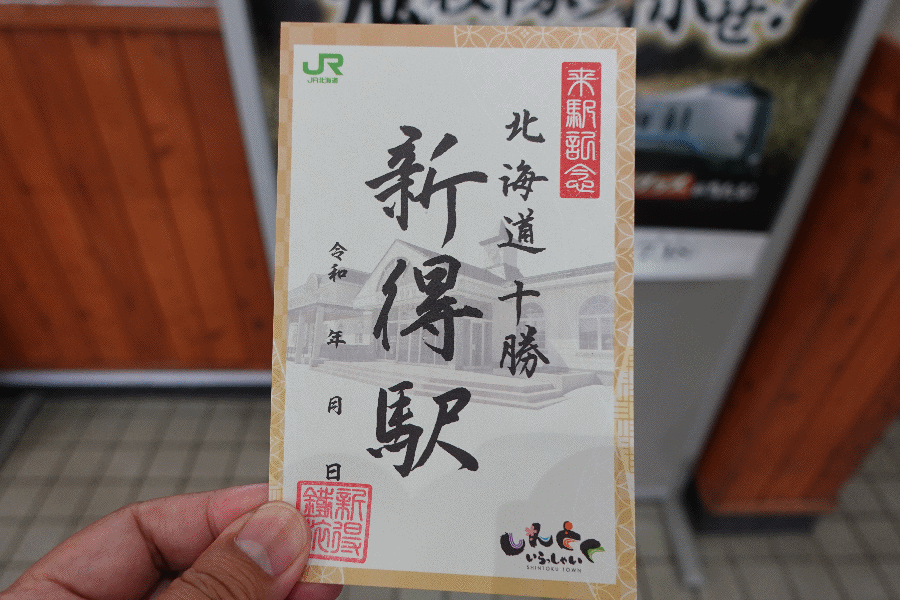 JR
JR北海道
来駅記念
北海道十勝
新得駅
令和 年 月 日
新得
しんとく
いらっしゃい
SHINTOKU TOWN